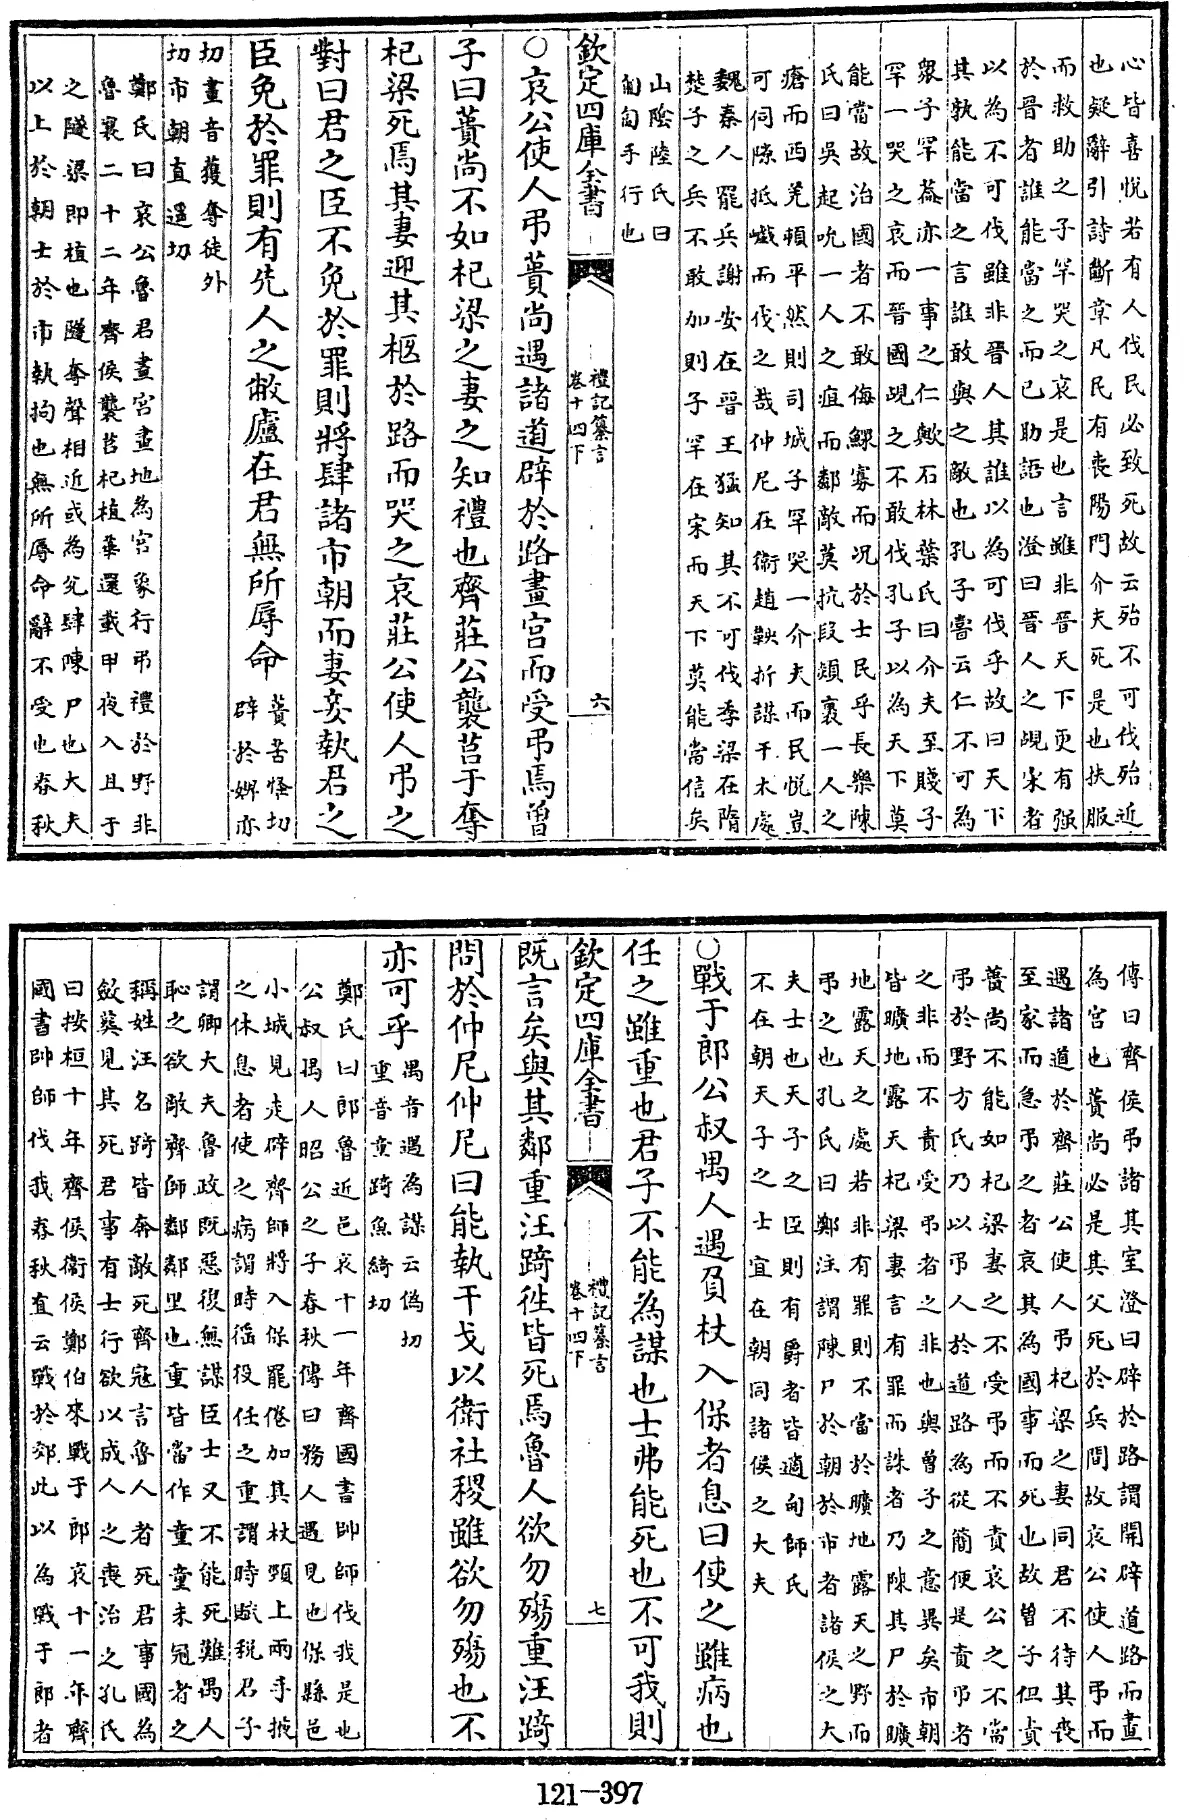 心皆喜悦若有人伐民必致死故云殆不可伐殆近
也疑辭引詩斷章凡民有喪陽門介夫死是也扶服
而救助之子罕哭之哀是也言雖非晉天下更有强
於晉者誰能當之而已助語也澄曰晉人之覘宋者
以為不可伐雖非晉人其誰以為可伐乎故曰天下
其孰能當之言誰敢與之敵也孔子嘗云仁不可為
衆子罕蓋亦一事之仁歟石林葉氏曰介夫至賤子
罕一哭之哀而晉國覘之不敢伐孔子以為天下莫
能當故治國者不敢侮鰥寡而况於士民乎長樂陳
氏曰吳起吮一人之疽而鄰敵莫抗段熲裹一人之
瘡而西羌頓平然則司城子罕哭一介夫而民悦豈
可伺隙抵巇而伐之哉仲尼在衛趙鞅折謀干木處
魏秦人罷兵謝安在晉王猛知其不可伐季梁在隋
楚子之兵不敢加則子罕在宋而天下莫能當信矣
山陰陸氏曰
匍匐手行也
欽定四庫全書
禮記纂言
卷十四下
六
○哀公使人弔蕢尚遇諸道辟於路畫宮而受弔焉曾
子曰蕢尚不如杞梁之妻之知禮也齊莊公襲莒于奪
杞梁死焉其妻迎其柩於路而哭之哀莊公使人弔之
對曰君之臣不免於罪則將肆諸市朝而妻妾執君之
臣免於罪則有先人之敝廬在君無所辱命
蕢苦怪切
辟於娉亦
切畫音獲奪徒外
切市朝直遥切
鄭氏曰哀公魯君畫宮畫地為宮象行弔禮於野非
魯襄二十二年齊侯襲莒杞植華還載甲夜入且于
之隧梁即植也隧奪聲相近或為兊肆陳尸也大夫
以上於朝士於市執拘也無所辱命辭不受也春秋
傳曰齊侯弔諸其室澄曰辟於路謂開辟道路而畫
為宮也蕢尚必是其父死於兵間故哀公使人弔而
遇諸道於齊莊公使人弔杞梁之妻同君不待其喪
至家而急弔之者哀其為國事而死也故曾子但責
蕢尚不能如杞梁妻之不受弔而不責哀公之不當
弔於野方氏乃以弔人於道路為從簡便是責弔者
之非而不責受弔者之非也與曾子之意異矣市朝
皆曠地露天杞梁妻言有罪而誅者乃陳其尸於曠
地露天之處若非有罪則不當於曠地露天之野而
弔之也孔氏曰鄭注謂陳尸於朝於市者諸侯之大
夫士也天子之臣則有爵者皆適甸師氏
不在朝天子之士宜在朝同諸侯之大夫
○戰于郎公叔禺人遇負杖入保者息曰使之雖病也
任之雖重也君子不能為謀也士弗能死也不可我則
欽定四庫全書
禮記纂言
卷十四下
七
既言矣與其鄰重汪踦徃皆死焉魯人欲勿殤重汪踦
問於仲尼仲尼曰能執干戈以衛社稷雖欲勿殤也不
亦可乎
禺音遇為謀云偽切
重音童踦魚綺切
鄭氏曰郎魯近邑哀十一年齊國書帥師伐我是也
公叔禺人昭公之子春秋傳曰務人遇見也保縣邑
小城見走辟齊師將入保罷倦加其杖頸上兩手掖
之休息者使之病謂時徭役任之重謂時賦税君子
謂卿大夫魯政既惡復無謀臣士又不能死難禺人
恥之欲敵齊師鄰鄰里也重皆當作童童未冠者之
稱姓汪名踦皆奔敵死齊寇言魯人者死君事國為
斂葬見其死君事有士行欲以成人之喪治之孔氏
曰按桓十年齊侯衛侯鄭伯來戰于郎哀十一年齊
國書帥師伐我春秋直云戰於郊此以為戰于郎者
121-397